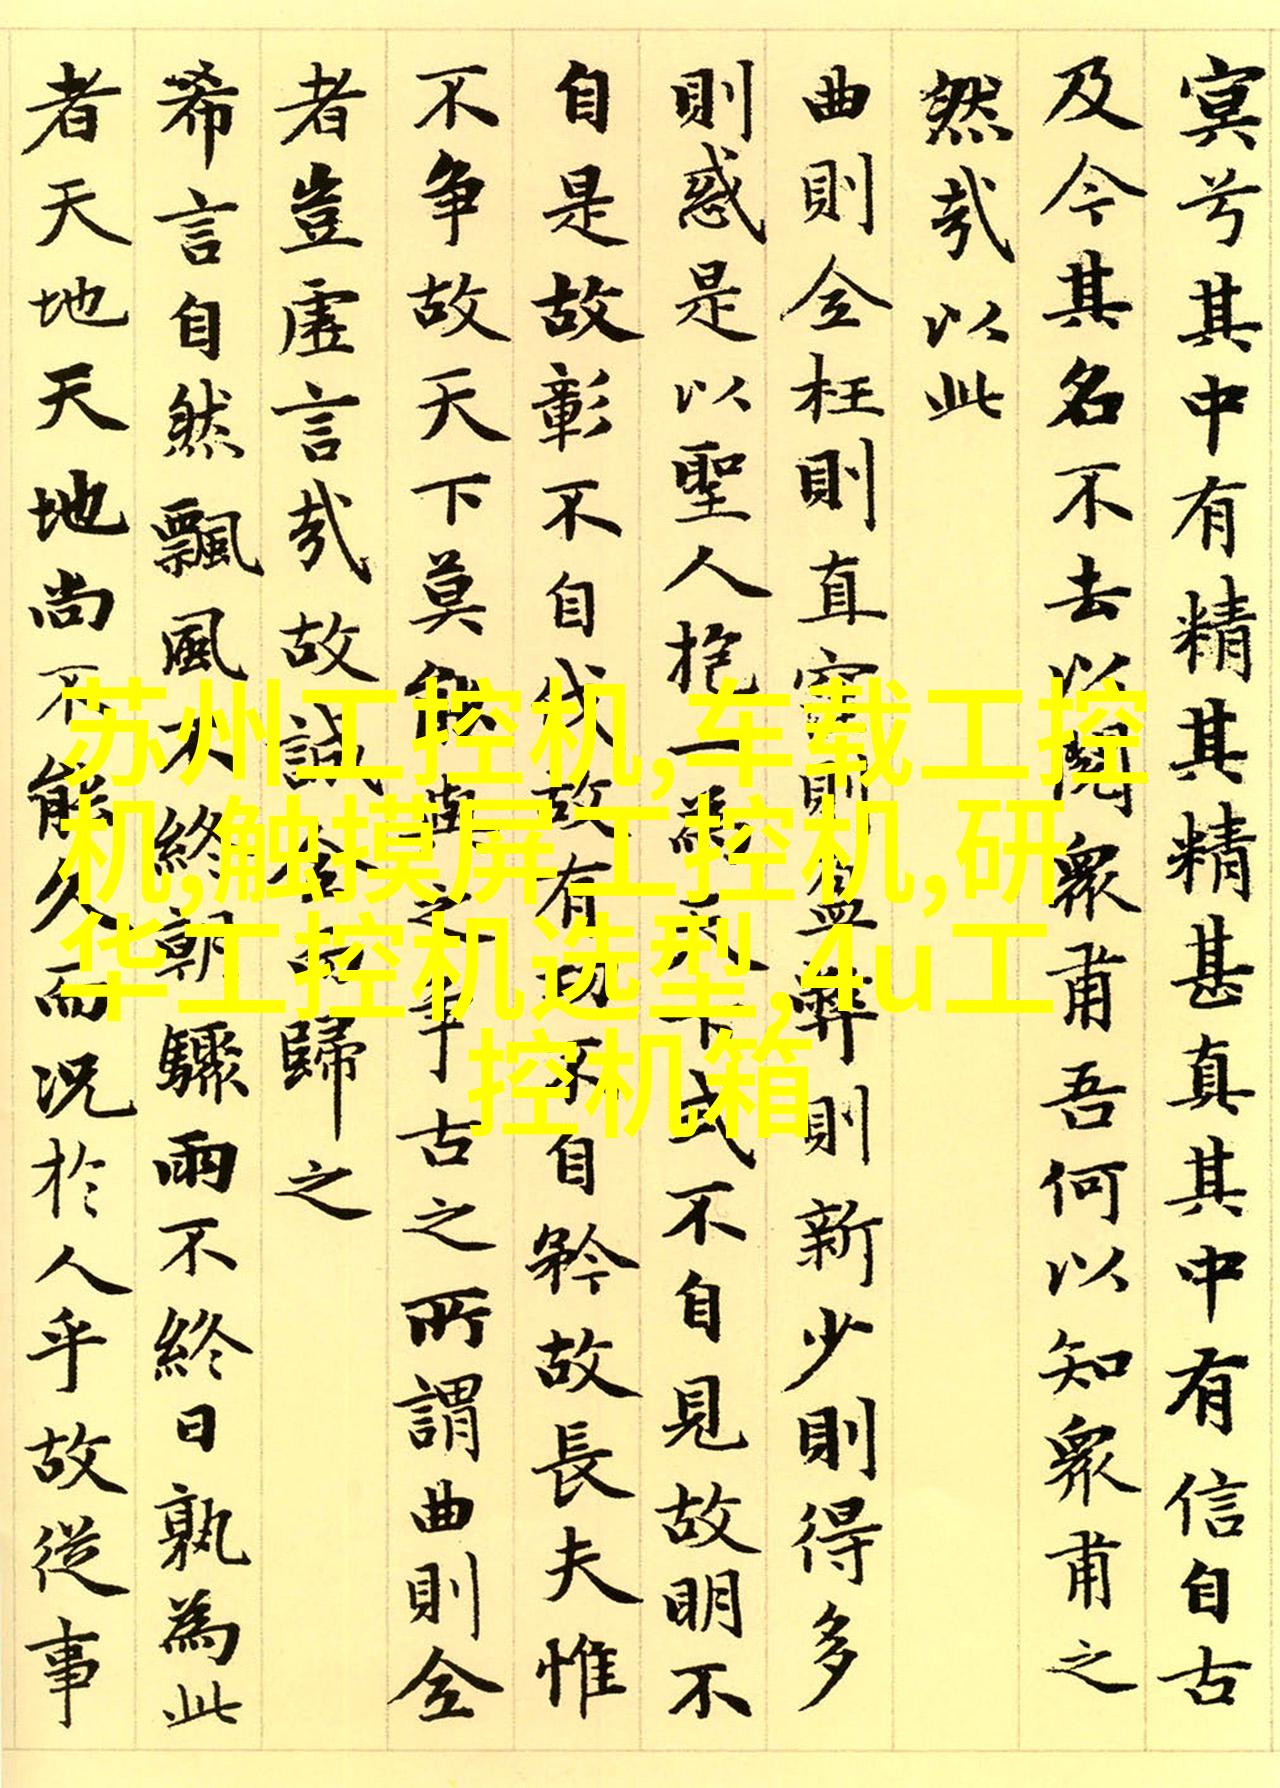 冥兮其中有精其精甚真其中有信自古
及今其名不去以閱眾甫吾何以知眾甫之
然哉以此
曲則全枉則直窪則盈弊則新少則得多
則惑是以聖人抱一為天下式不自見故明不
自是故彰不自伐故有功不自矜故長夫惟
不争故天下莫能與之争古之所謂曲則全
者豈虛言哉故誠全而歸之
希言自然飄風不終朝驟雨不終日孰為此
者天地天地尚不能久而況於人乎故從事
苏州工控机,车载工控
机,触摸屏工控机,研
华工控机选型,4u工
控机箱